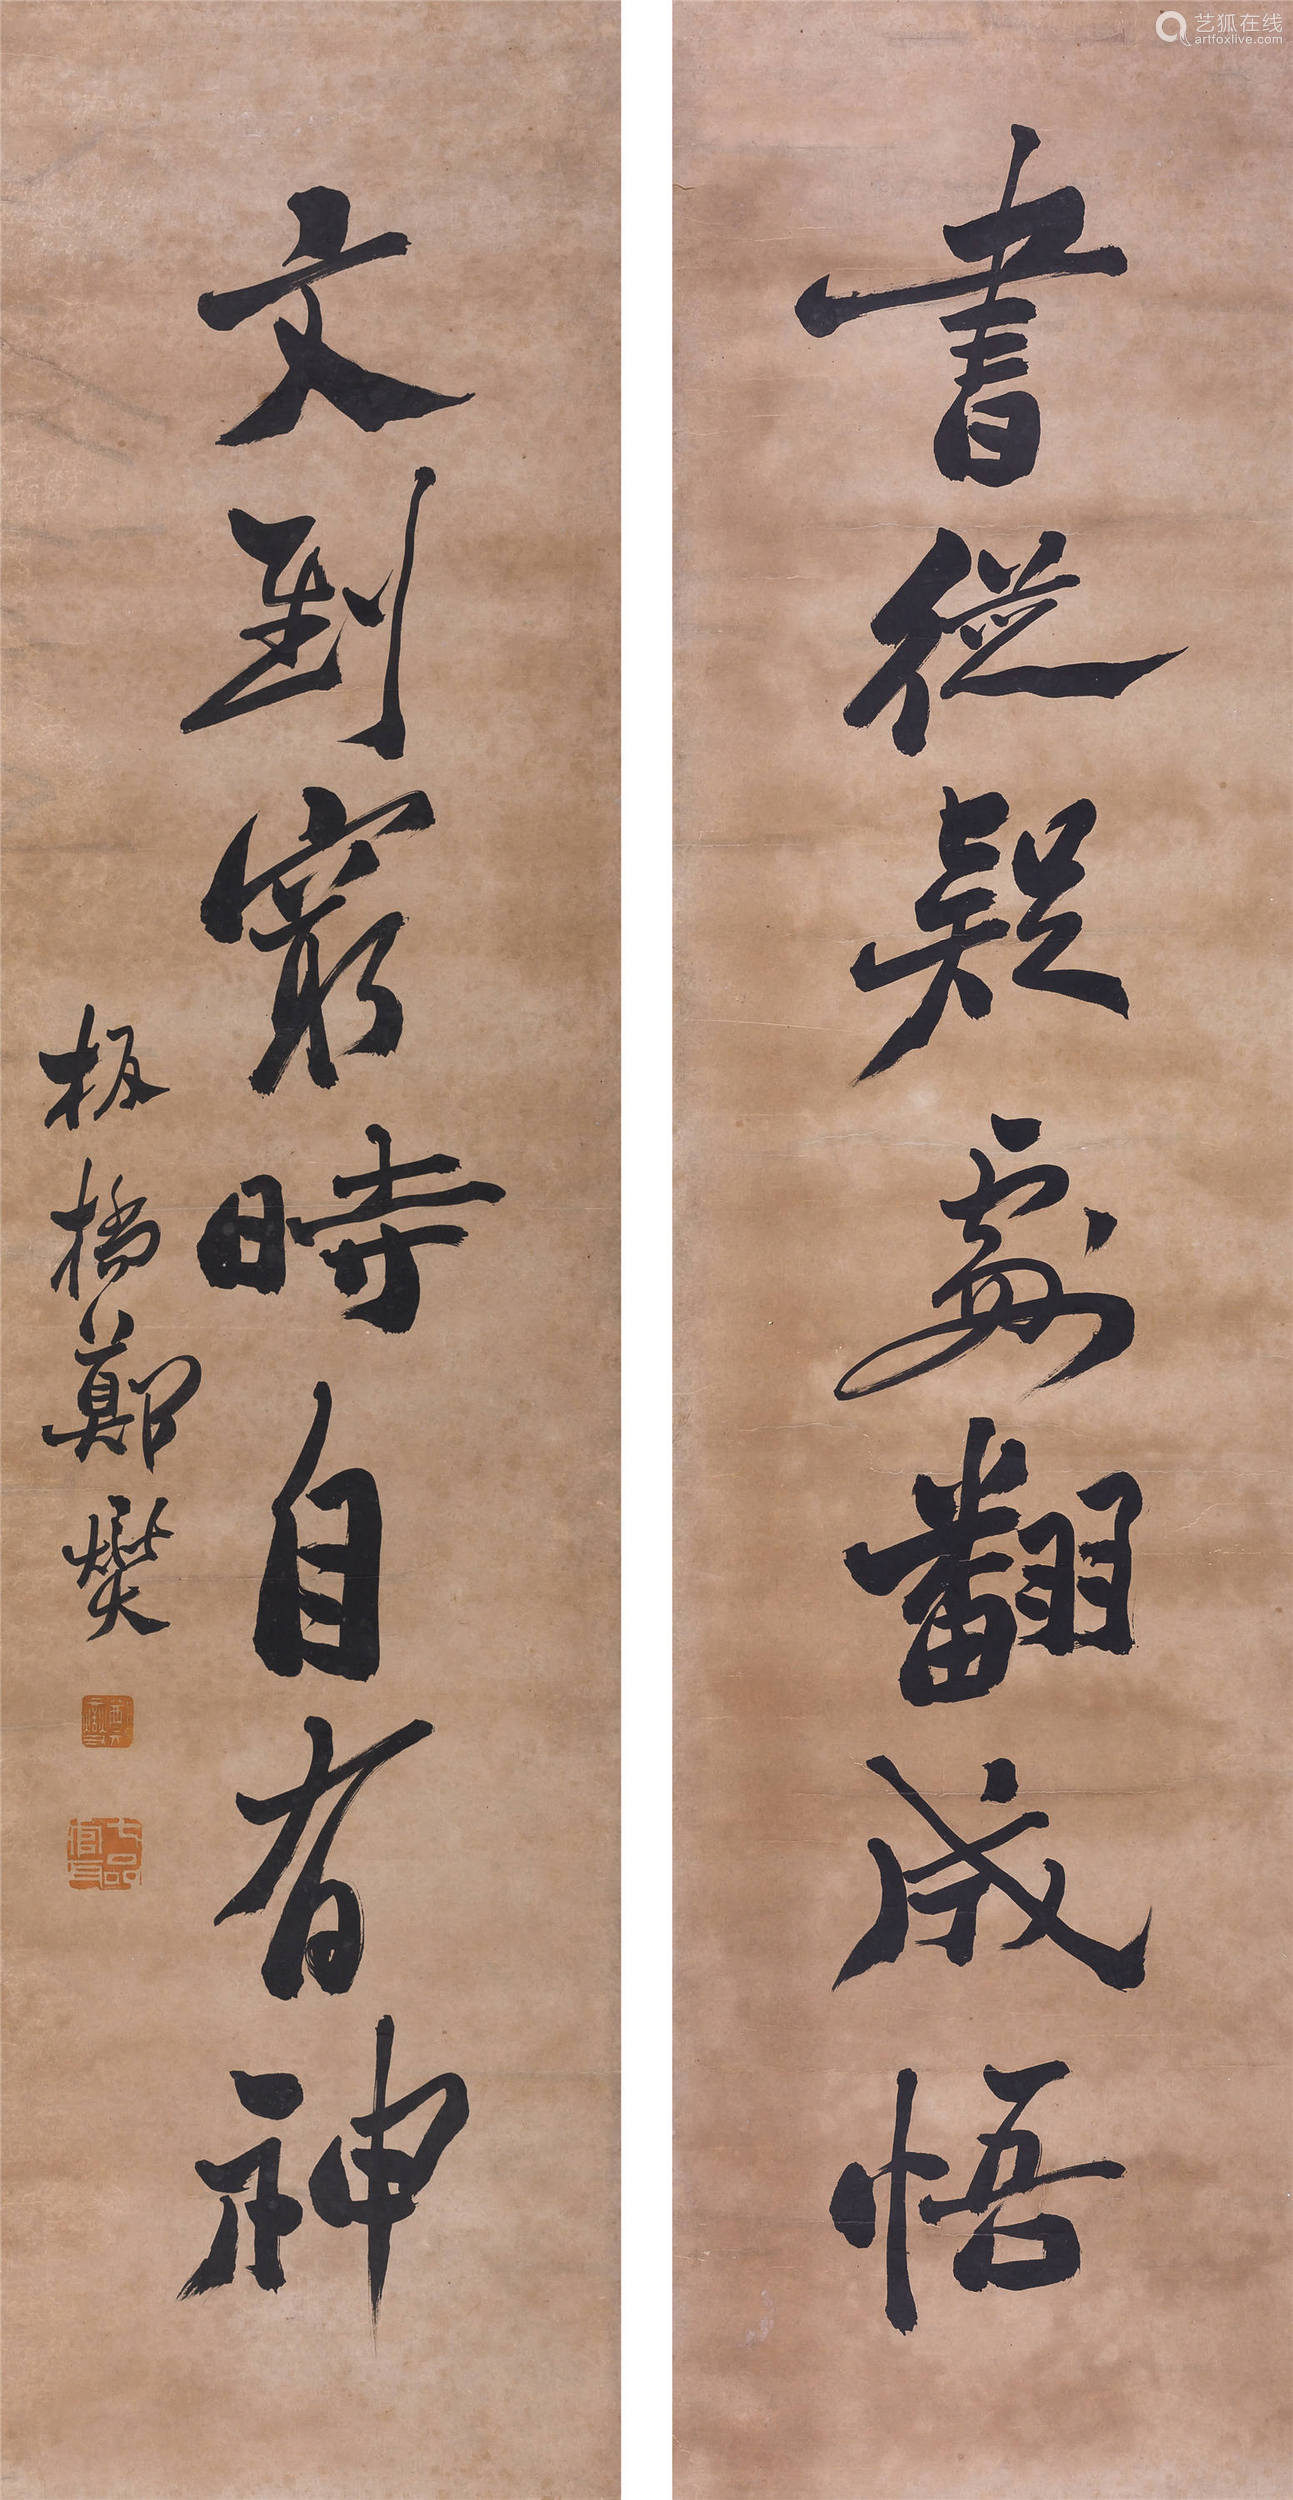 書從疑處翻成悟
文到窮時自有神
板橋鄭燮
七品官耳
艺狐在线
artfoxlive.com